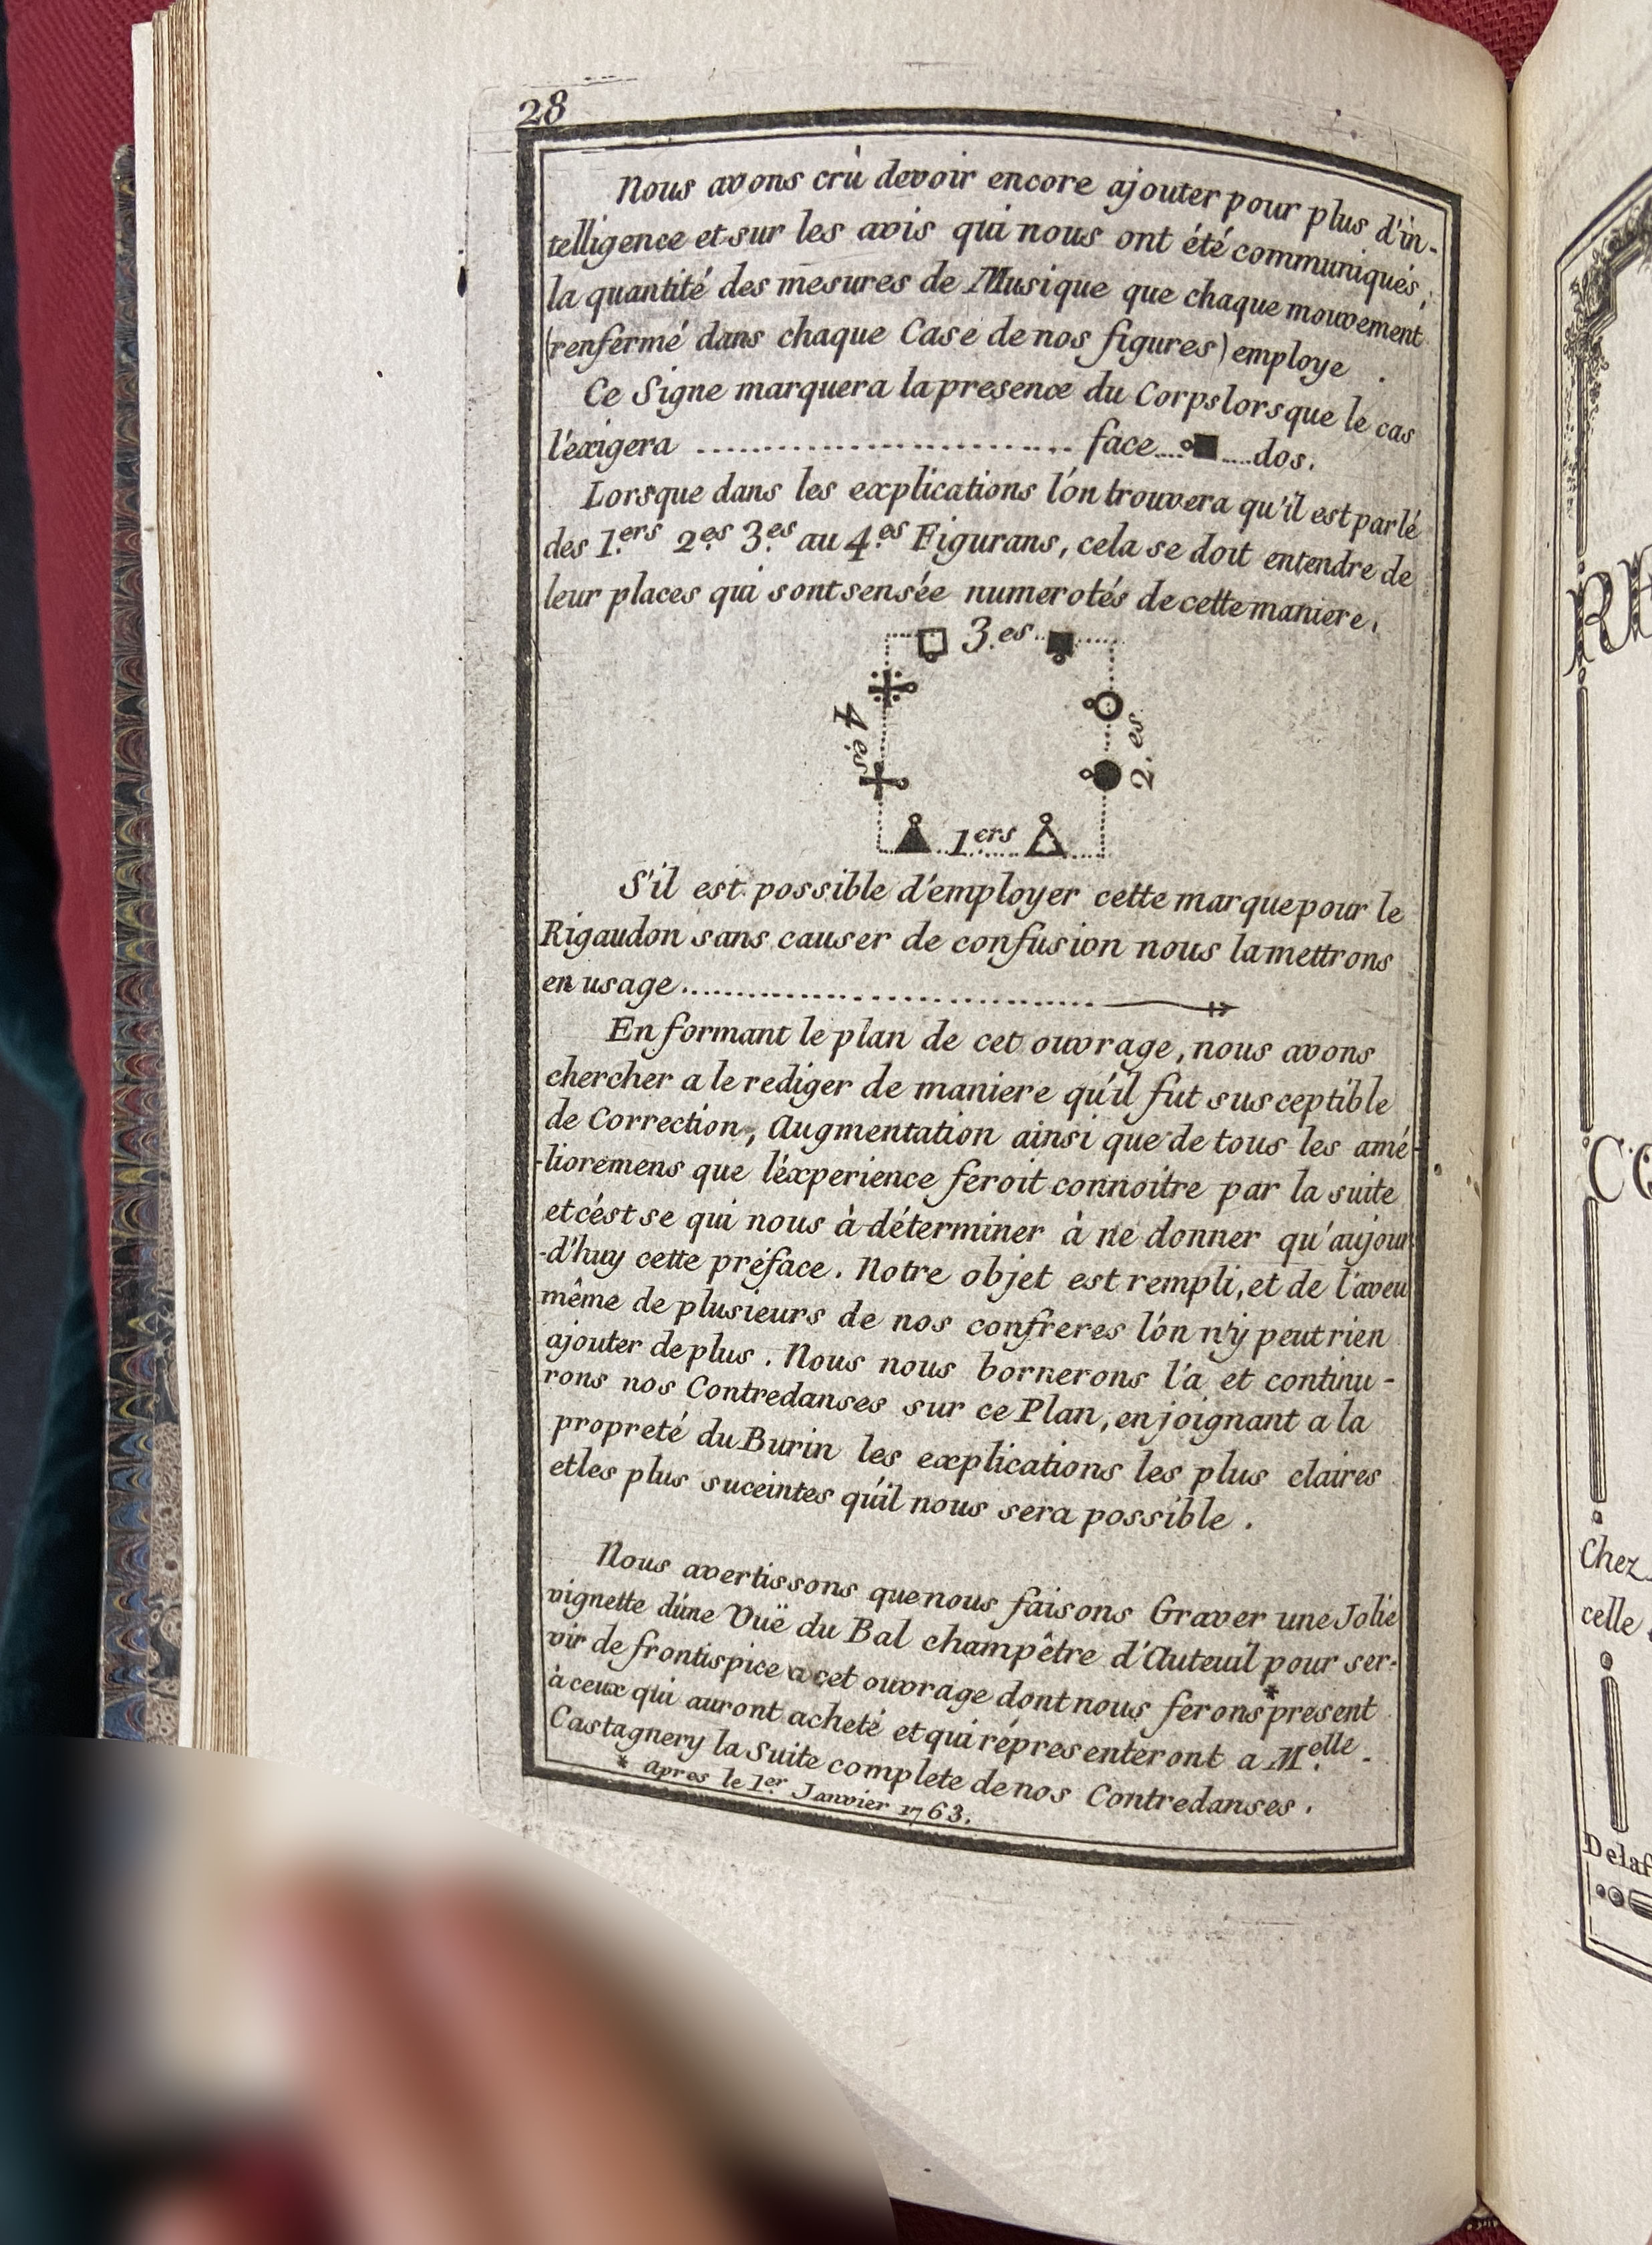 28
Nous avons crù devoir encore ajouter pour plus d'in-
telligence et sur les avis qui nous ont été communiqués,
la quantité des mesures de Musique que chaque mouvement
(renfermé dans chaque Case de nos figures) employe .
Ce Signe marquera la presence du Corps lorsque le cas
l'éxigera .............................. face.... ....dos.
Lorsque dans les explications l'ón trouvera qu'il est parlé
des 1.ers 2.es 3.es au 4.es Figurans, cela se doit entendre de
leur places qui sont sensée numerotés de cette maniere.
3.es
4.es
2.es
1ers
S'il est possible d'employer cette marque pour le
Rigaudon sans causer de confusion nous la mettrons
en usage..............................
En formant le plan de cet ouvrage, nous avons
chercher a le rediger de maniere qu'il fut susceptible
de Correction, Augmentation ainsi que de tous les amé-
-lioremens que l'éxperience feroit connoitre par la suite
et cést se qui nous à déterminer à ne donner qu'aujour-
-d'huy cette préface. Notre objet est rempli, et de l'aveu
même de plusieurs de nos confreres l'ón n'y peut rien
ajouter de plus. Nous nous bornerons l'a et continu-
rons nos Contredanses sur ce Plan, en joignant a la
propreté du Burin les explications les plus claires
et les plus suceintes qu'il nous sera possible.
Nous avertissons que nous faisons Graver une Jolie
vignette d'úne Vuë du Bal champêtre d'Auteuil pour ser-
vir de frontispice a cet ouvrage dont nous ferons * present
à ceux qui auront acheté et qui répresenteront a M.elle
Castagnery la Suite complete de nos Contredanses.
* apres le 1.er Janvier 1763.
Chez
celle